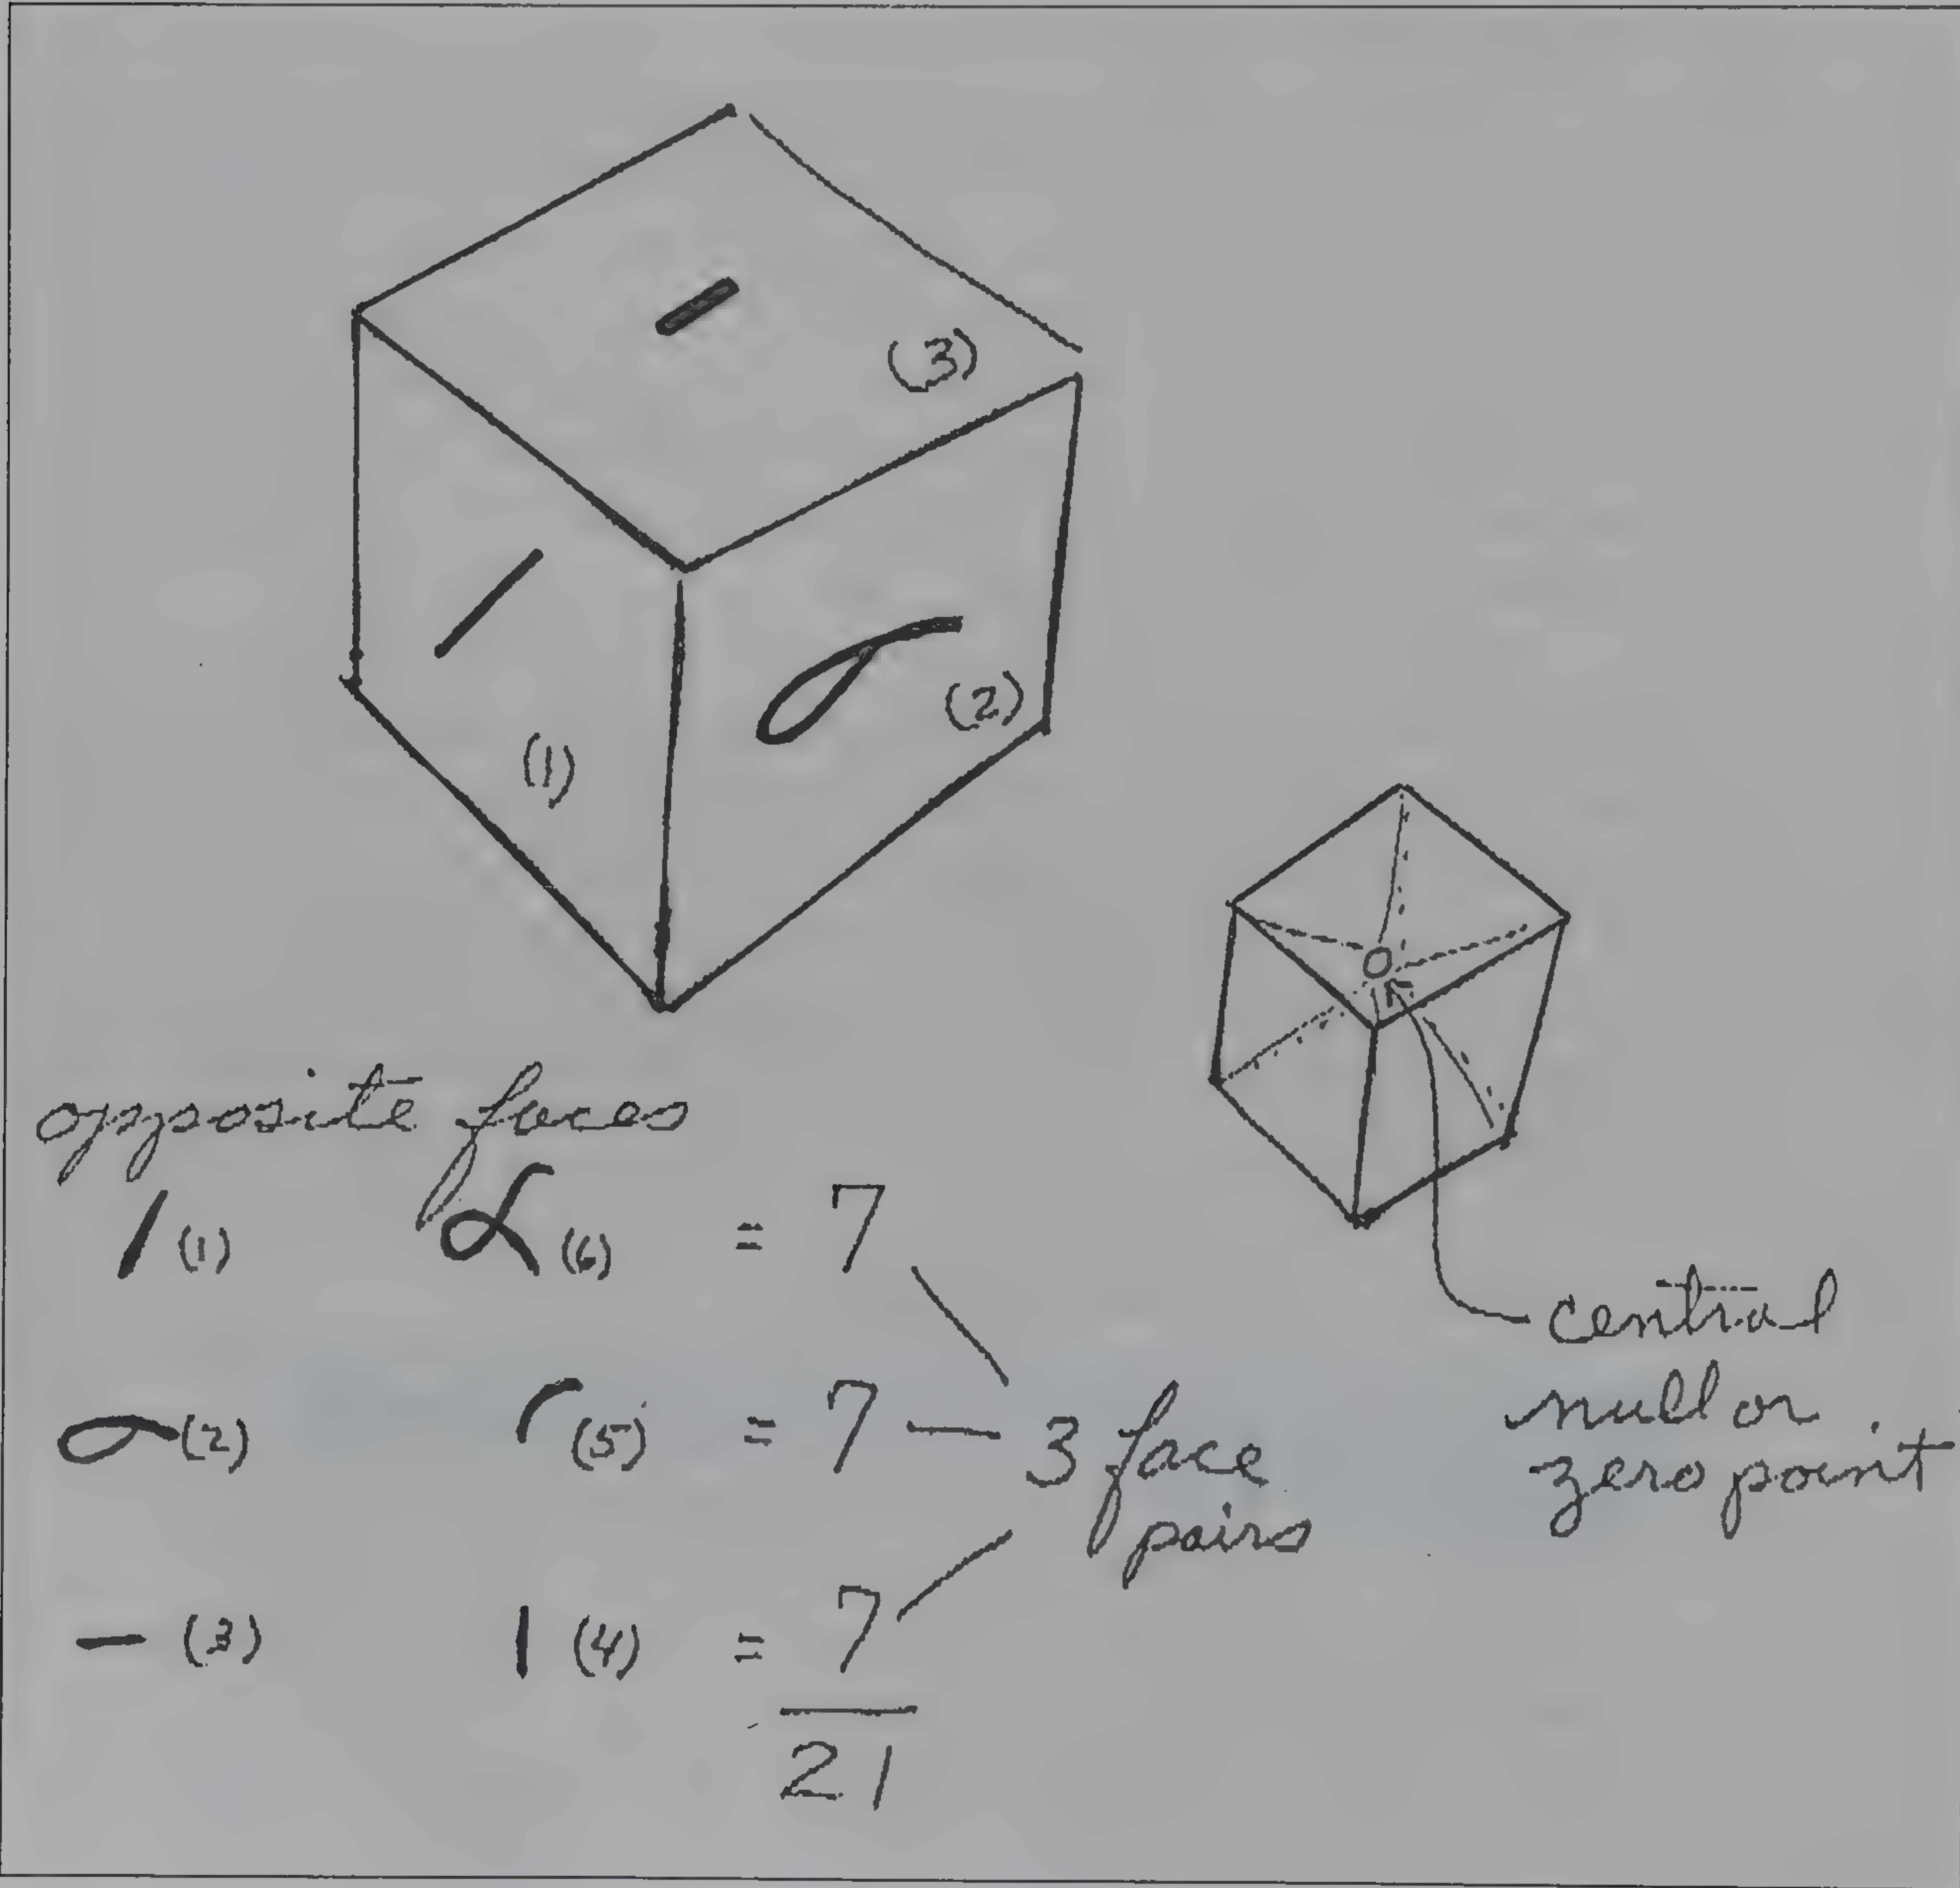 (3)
(1)
(2)
opposite faces
/ (1) α (6) = 7
σ (2) ( (5) = 7 — 3 face pairs
— (3) | (4) = 7
21
central
null or
zero point